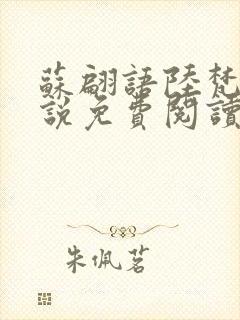 蘇翩語陸梵
說免費閱讀
朱佩茗